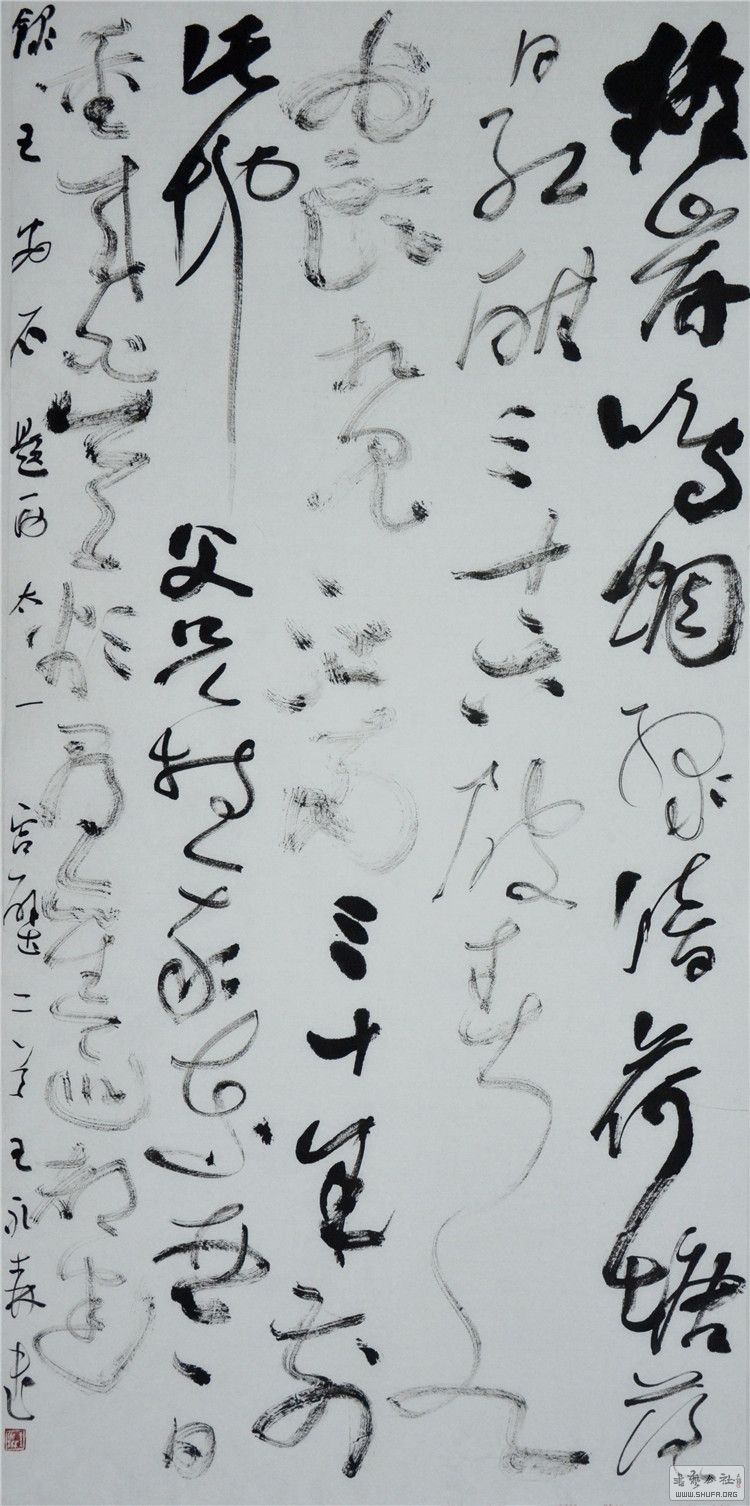 柳岸鸣蜩绿暗荷塘落
日红酣三十六陂春水
白头想见江南三十年前
此地父兄持我东西今日
重来白首欲寻陈迹都迷
録王安石题西太一宫壁二首王永森书
WWW.SHUFA.ORG